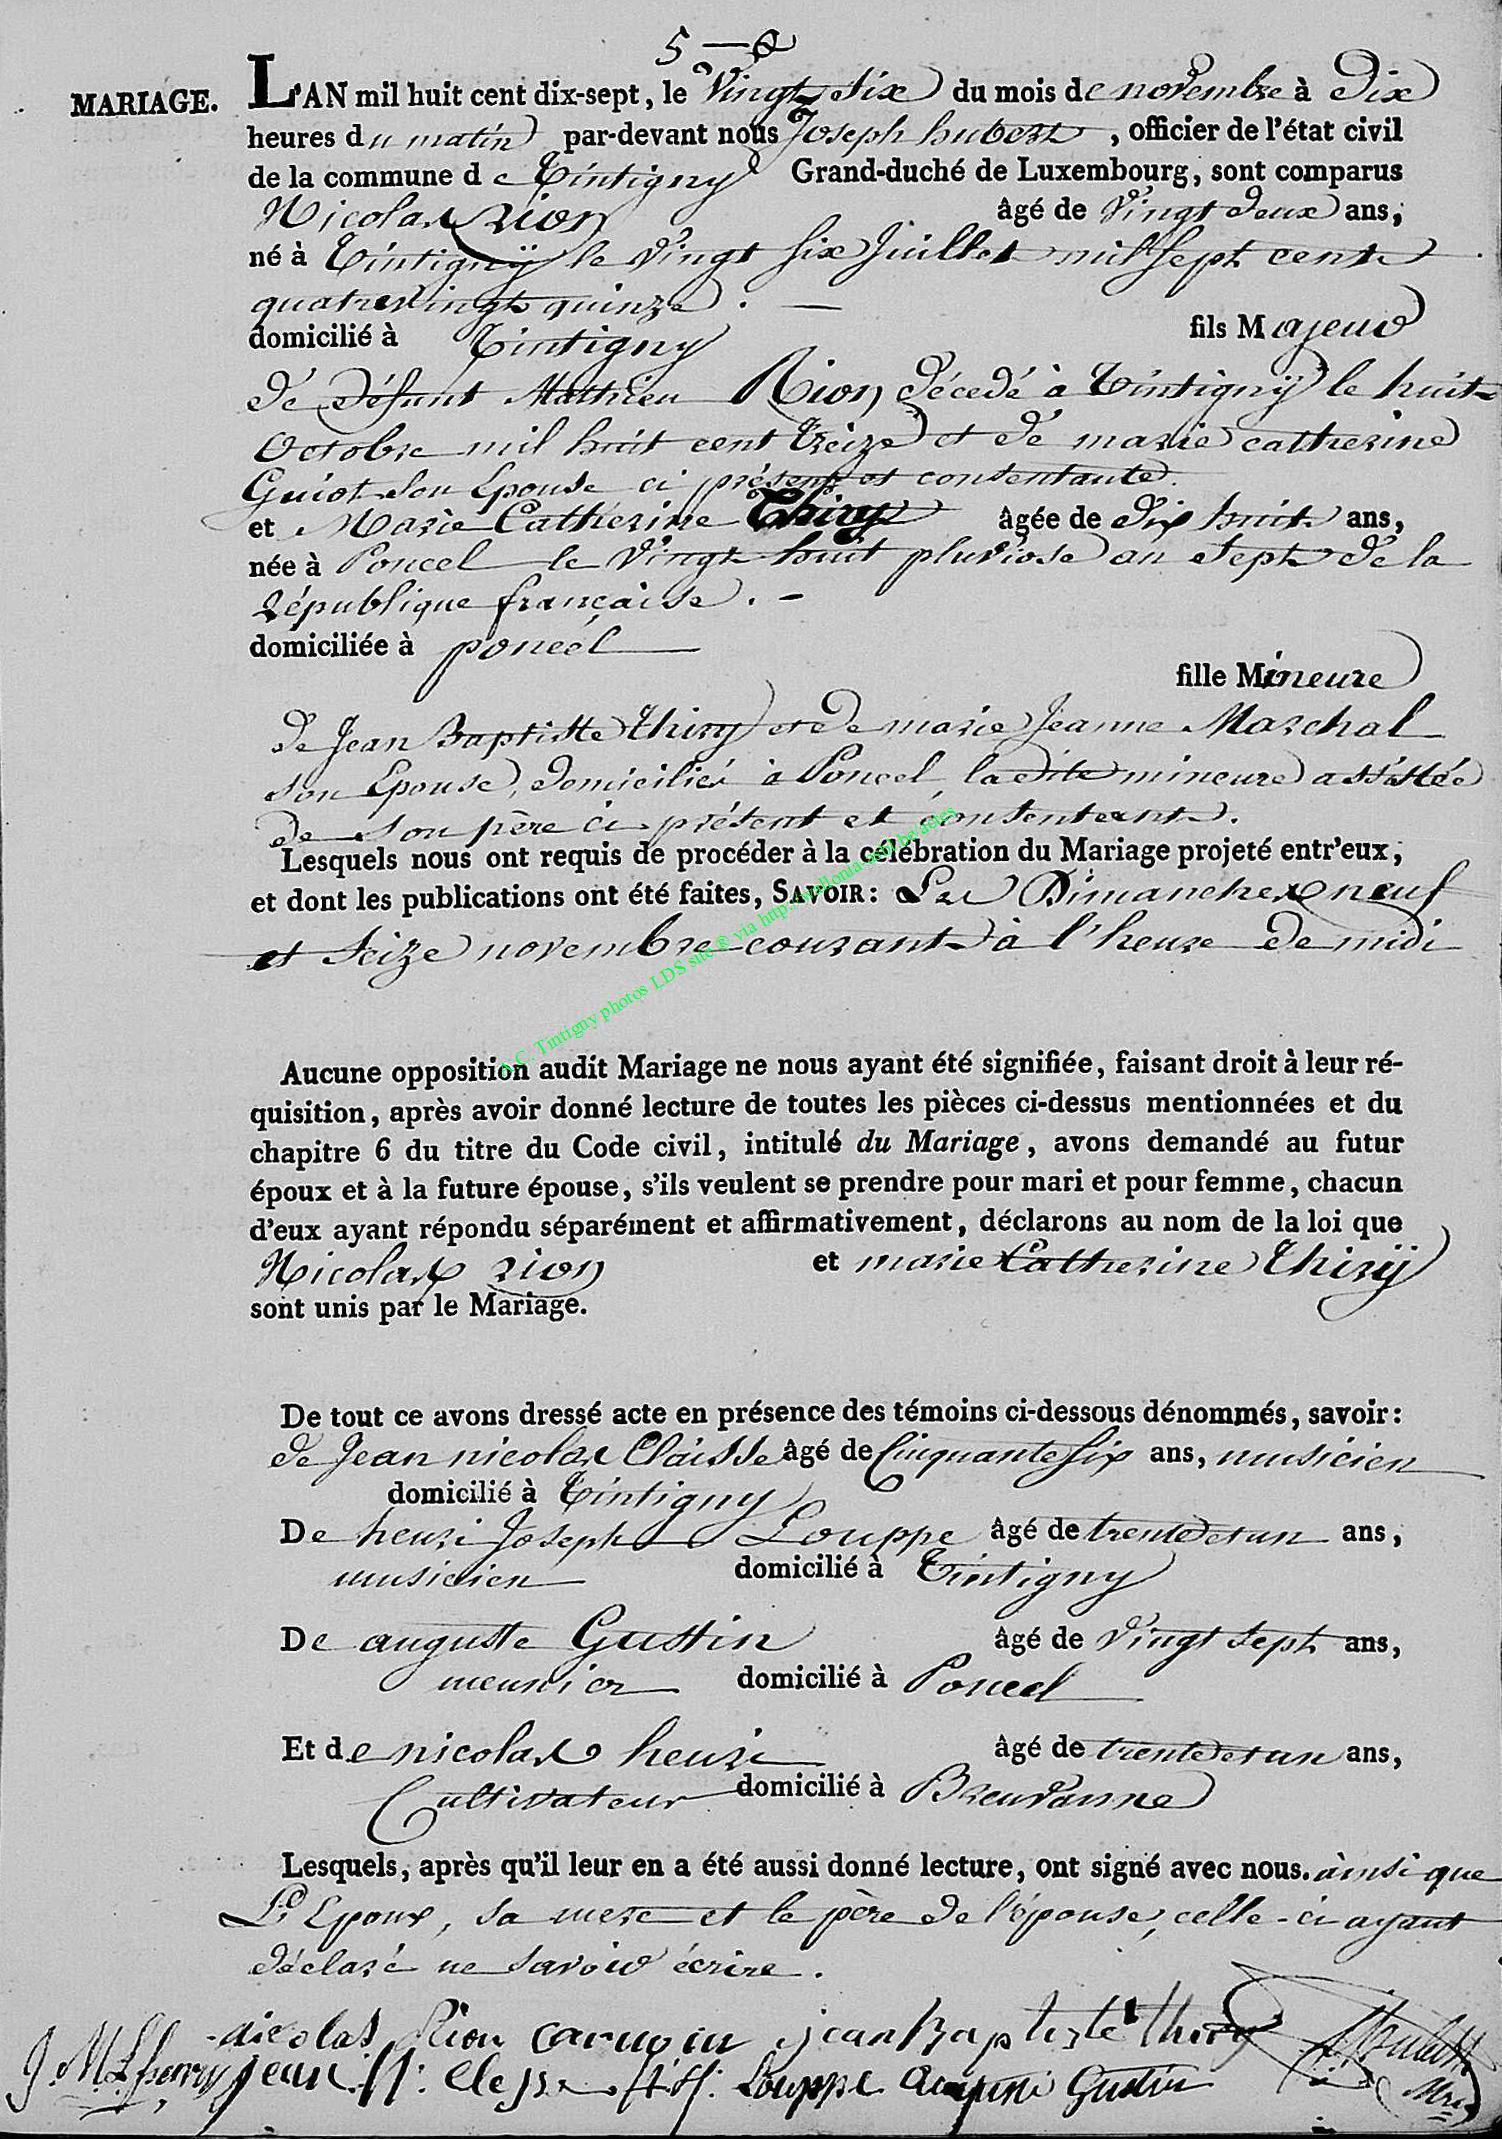 5
MARIAGE. L'AN mil huit cent dix-sept, le vingt six du mois de novembre à Dix
heures du matin par-devant nous Joseph hubert, officier de l'état civil
de la commune de Tintigny Grand-duché de Luxembourg, sont comparus
Nicolas rion âgé de vingt deux ans,
né à Tintignÿ le vingt six Juillet mil sept cent
quatrevingt quinze. —
domicilié à Tintigny fils Majeur
de Défunt Mathieu Rion décedé à Tintignÿ le huit
Octobre mil huit cent treize et de marie catherine
Guiot son Epouse ci présent et consentante.
et Marie Catherine Thiry âgée de dix huit ans,
née à Poncel le vingt huit pluviose an sept de la
république française. —
domiciliée à poncél
fille Mineure
de Jean Baptiste thiry et de marie Jeanne Marchal
son Epouse, domicilié à Poncel, la dite mineure assistée
de son père ci présent et consentant.
Lesquels nous ont requis de procéder à la célébration du Mariage projeté entr'eux,
et dont les publications ont été faites, SAVOIR: Les Dimanches neuf
et seize novembre courant à l'heure de midi
A.C. Tintigny photos LDS site® via http://wallonia-asbl.be/actes
Aucune opposition audit Mariage ne nous ayant été signifiée, faisant droit à leur ré-
quisition, après avoir donné lecture de toutes les pièces ci-dessus mentionnées et du
chapitre 6 du titre du Code civil, intitulé du Mariage, avons demandé au futur
époux et à la future épouse, s'ils veulent se prendre pour mari et pour femme, chacun
d'eux ayant répondu séparément et affirmativement, déclarons au nom de la loi que
Nicolas rion et marie Catherine thirÿ
sont unis par le Mariage.
De tout ce avons dressé acte en présence des témoins ci-dessous dénommés, savoir:
de Jean nicolas Claisse âgé de Cinquante six ans, musicien
domicilié à Tintigny
De henri Joseph Louppe âgé de trente et un ans,
musicien domicilié à Tintigny
De auguste Gustin âgé de vingt sept ans,
meunier domicilié à Poncel
Et de nicolas henri âgé de trente et un ans,
Cultivateur domicilié à Breuvanne
Lesquels, après qu'il leur en a été aussi donné lecture, ont signé avec nous. ainsi que
L'Epoux, sa mere et le père de l'épouse, celle-ci ayant
déclaré ne savoir écrire.
nicolas Rion jean Baptiste thiry
jean N: Louppe Gustin